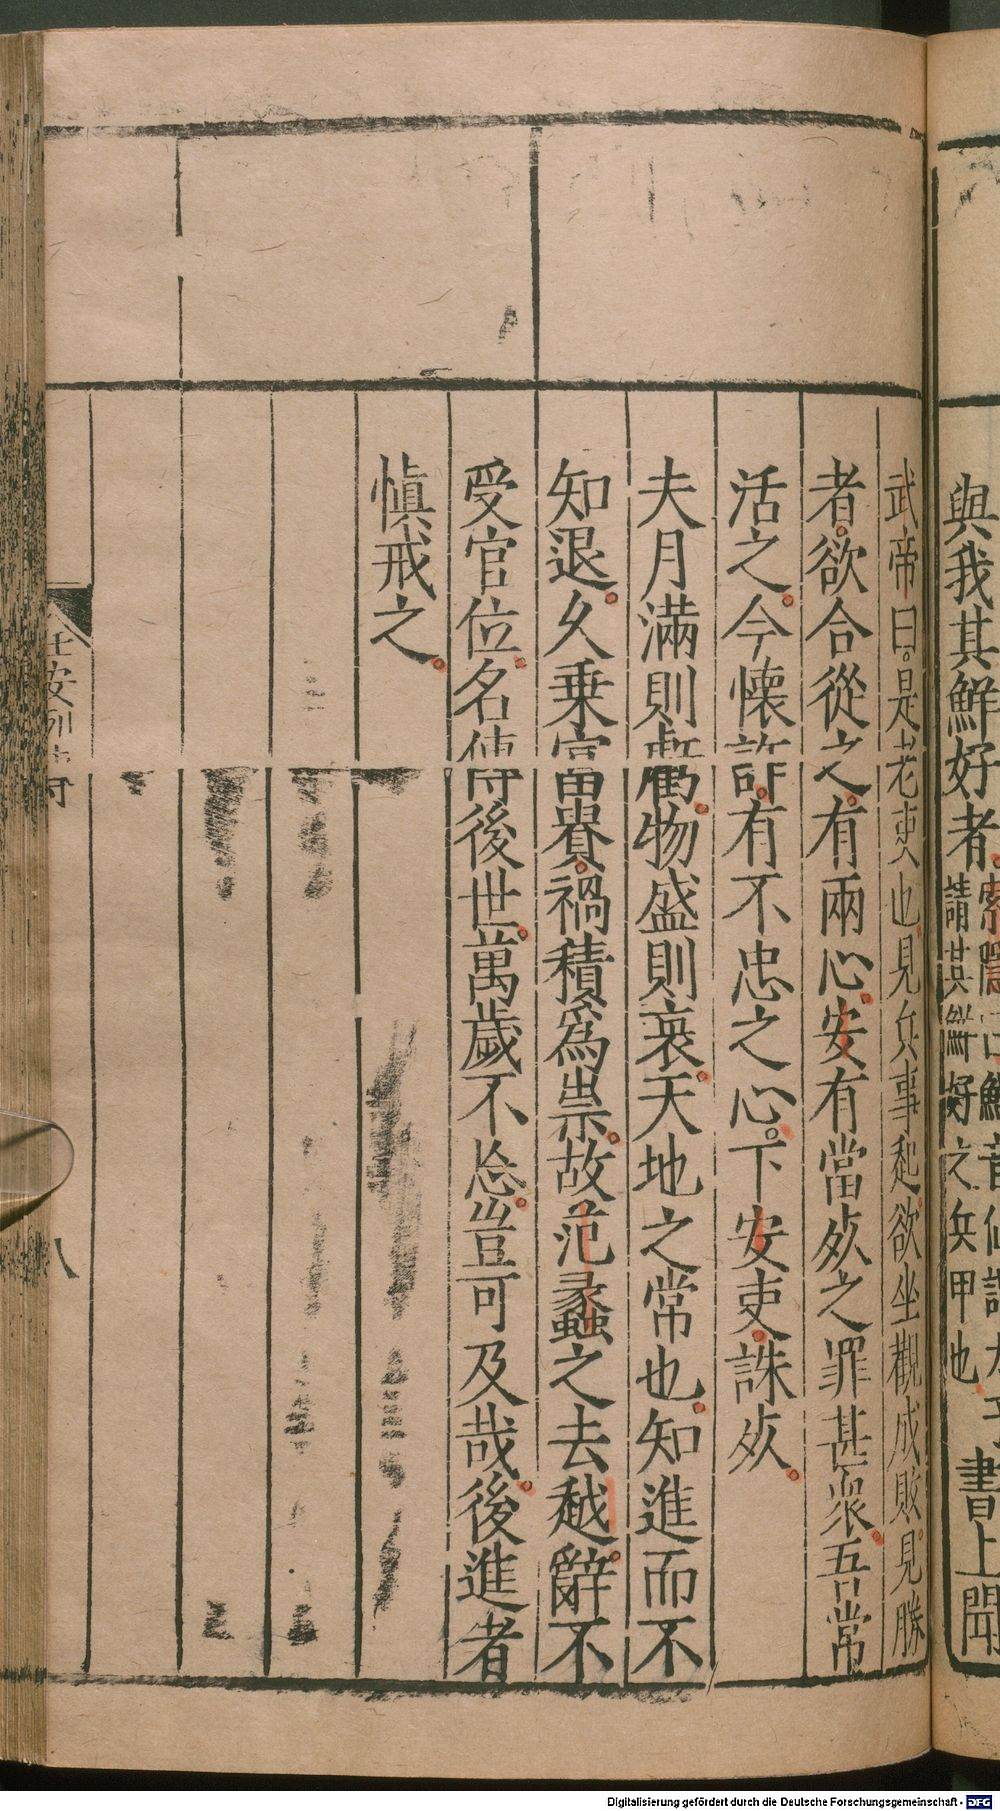 與我其鮮好者索隱曰鮮音仙謂太子
請其鮮好之兵甲也書上聞
武帝曰是老吏也見兵事起欲坐觀成敗見勝
者欲合從之有兩心安有當死之罪甚衆吾常
活之今懷詐有不忠之心下安吏誅死
夫月滿則虧物盛則衰天地之常也知進而不
知退久乗富貴禍積爲祟故范蠡之去越辭不
受官位名傳後世萬歲不忘豈可及哉後進者
慎戒之
任安列傳
八
Digitalisierung gefördert durch die Deutsche Forschungsgemeinschaft - DFG